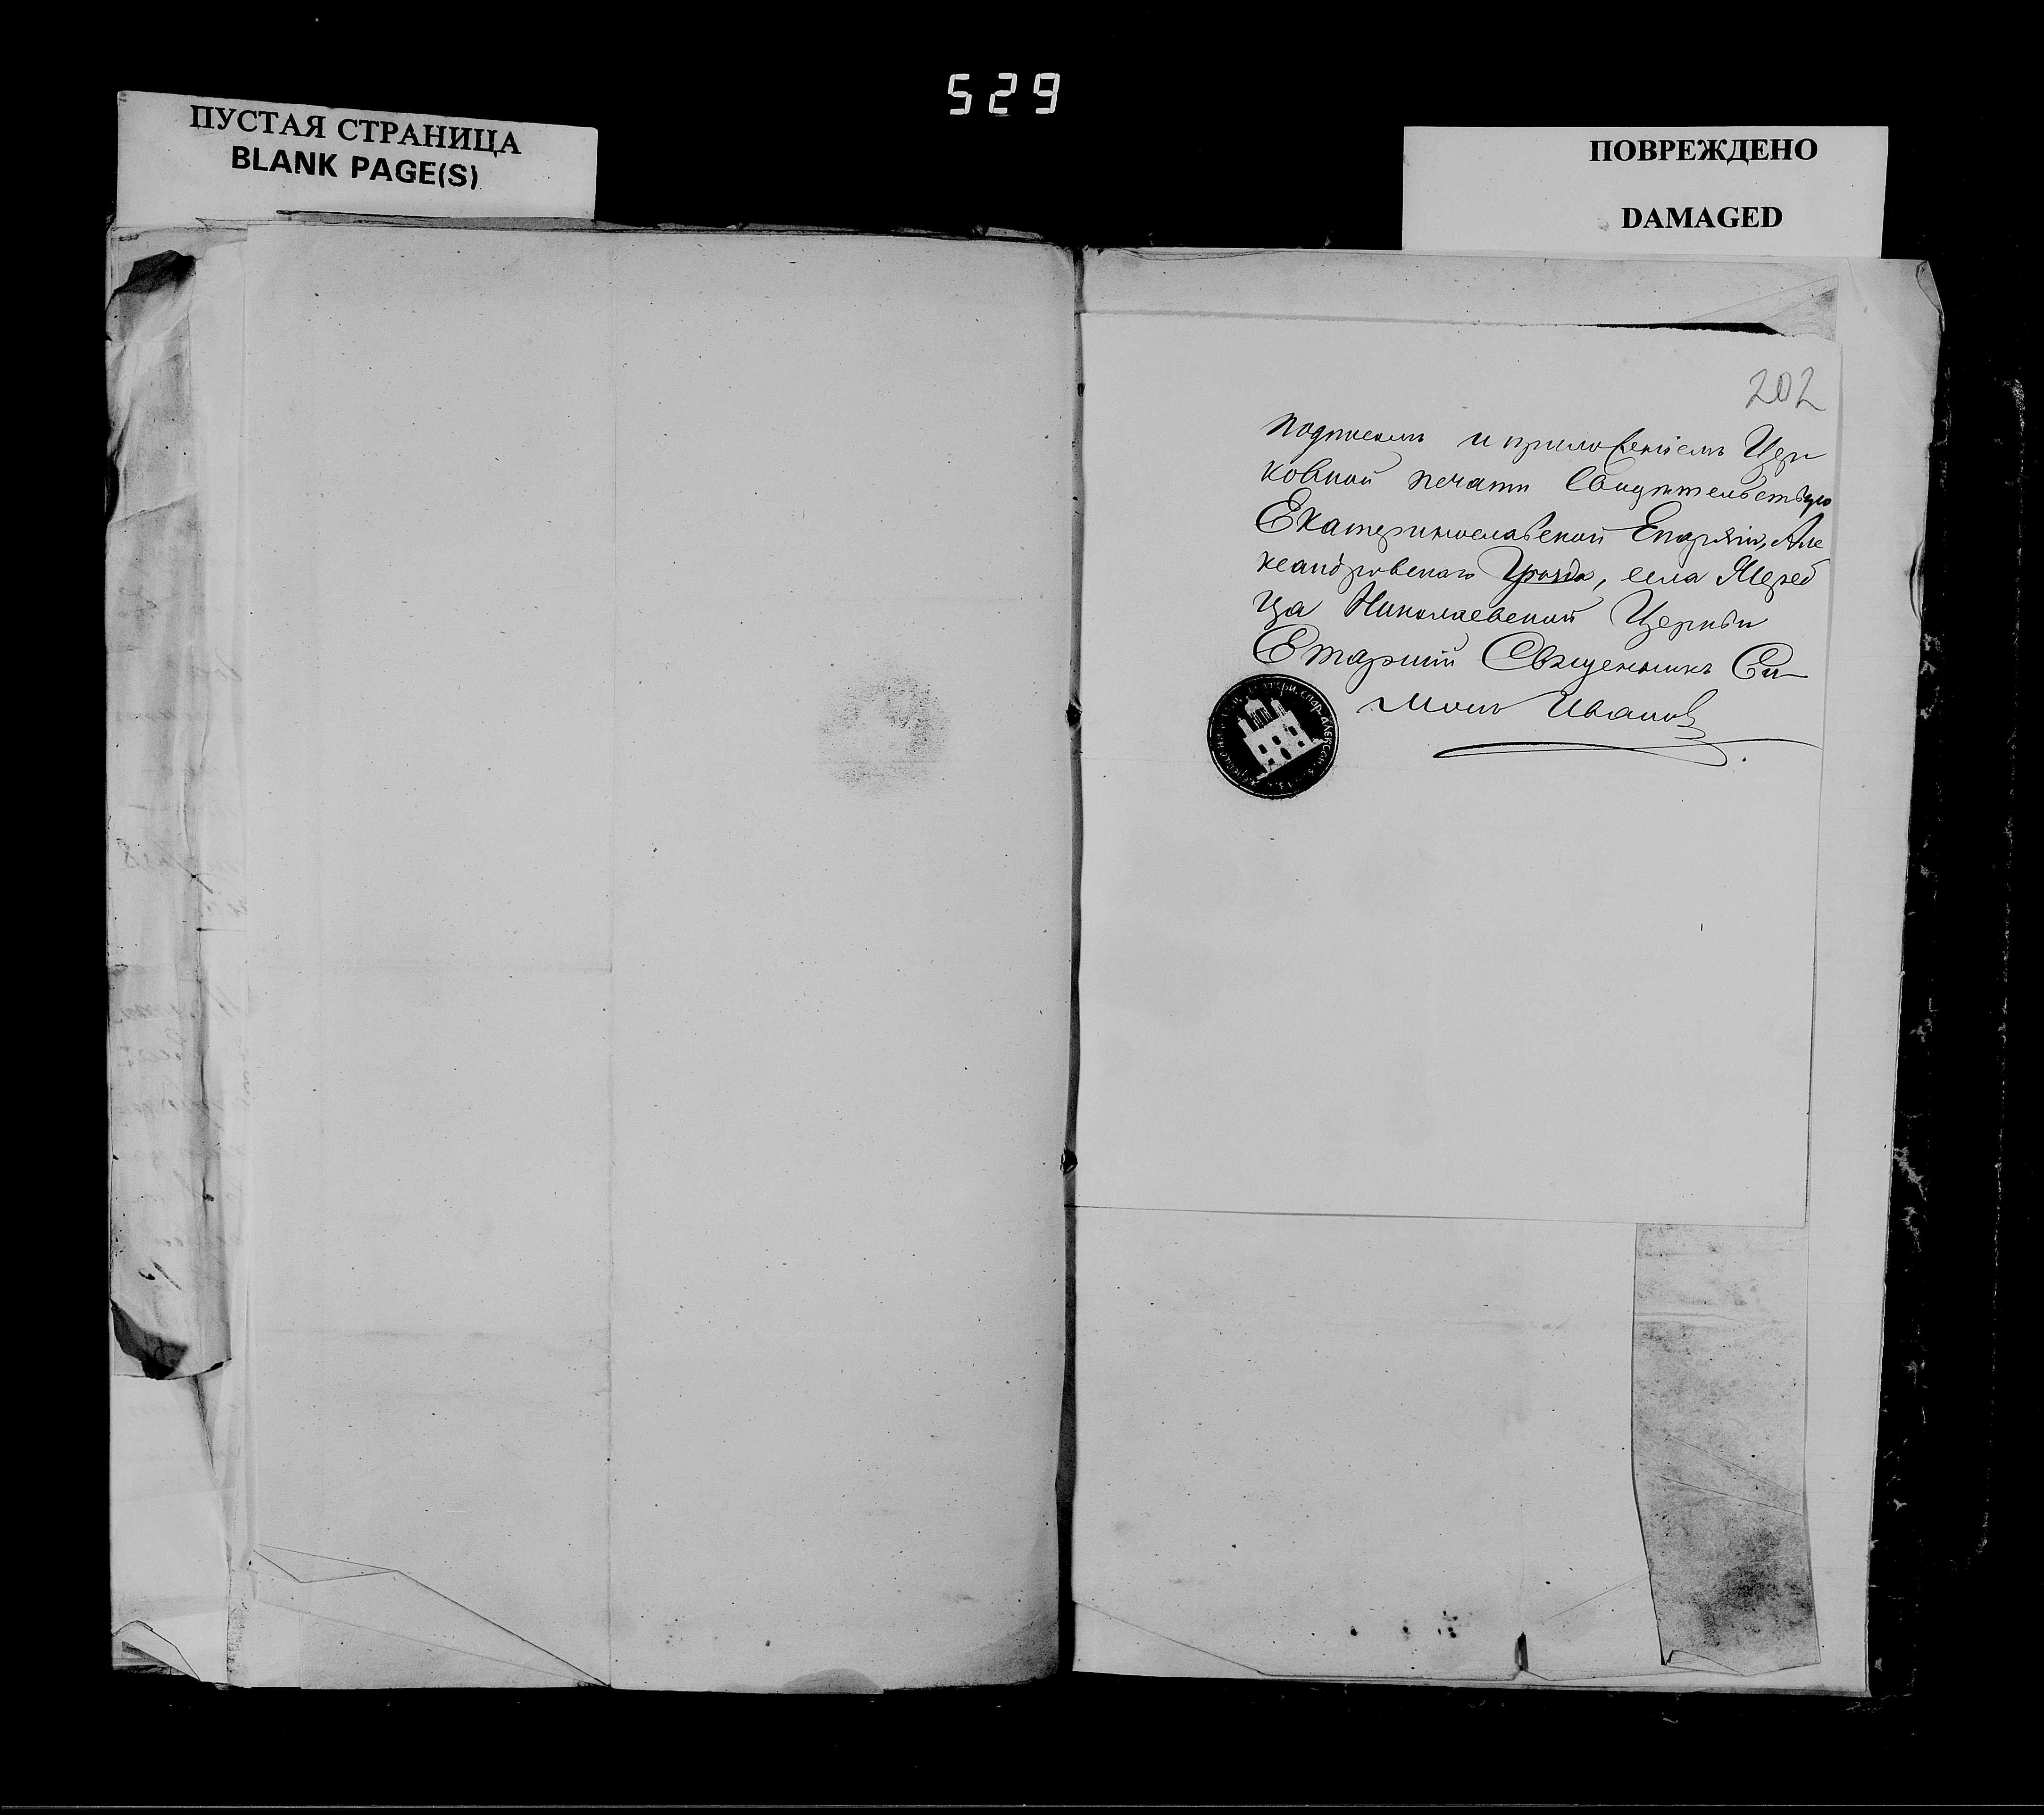 529
ПУСТАЯ СТРАНИЦА
BLANK PAGE(S)
ПОВРЕЖДЕНО
DAMAGED
202
подписомъ и приложеніемъ Цер
ковной печати Свидѣтельствую
Екатеринославской Епархіи, Але
ксандровскаго Уѣзда, села Жереб
ца Николаевской Церкви
Старшій Священникъ Си-
монъ Иванов